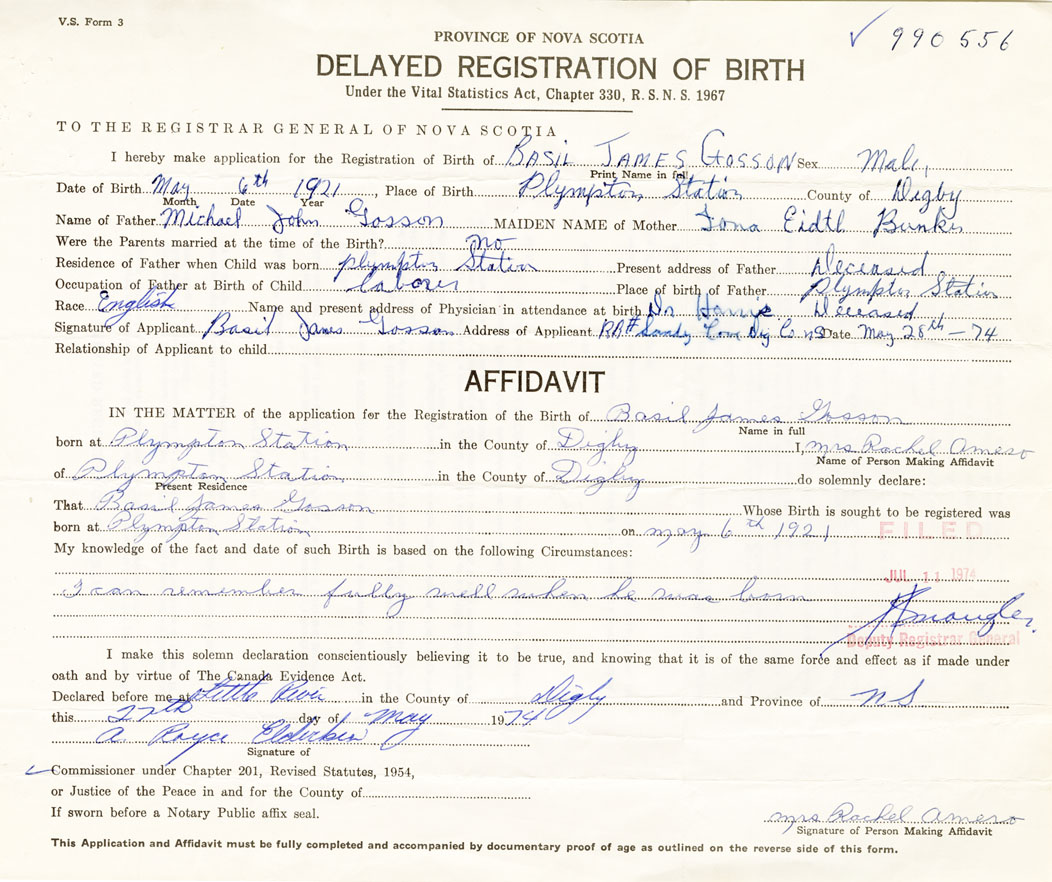 V.S. Form 3
990556
PROVINCE OF NOVA SCOTIA
DELAYED REGISTRATION OF BIRTH
Under the Vital Statistics Act, Chapter 330, R.S.N.S. 1967
TO THE REGISTRAR GENERAL OF NOVA SCOTIA
I hereby make application for the Registration of Birth of BASIL JAMES GOSSON Sex Male,
Print Name in full
Date of Birth May 6th 1921, Place of Birth Plympton Station County of Digby
Month Date Year
Name of Father Michael John Gosson MAIDEN NAME of Mother Eidtl
Were the Parents married at the time of the Birth? no
Residence of Father when Child was born plympton Station Present address of Father Deceased
Occupation of Father at Birth of Child Laborer Place of birth of Father Plympton Station
Race English Name and present address of Physician in attendance at birth Dr Deceased
Signature of Applicant Basil James Gosson Address of Applicant RR# Sandy Cove Dig Co NS Date May 28th - 74
Relationship of Applicant to child
AFFIDAVIT
IN THE MATTER of the application for the Registration of the Birth of Basil James Gosson
Name in full
born at Plympton Station in the County of Digby I, mrs Rachel Amero
Name of Person Making Affidavit
of Plympton Station in the County of Digby do solemnly declare:
Present Residence
That Basil James Gosson Whose Birth is sought to be registered was
born at Plympton Station on may 6th 1921
FILED
My knowledge of the fact and date of such Birth is based on the following Circumstances:
JUL 11 1974
I can remember fully well when he was born
Deputy Registrar General
I make this solemn declaration conscientiously believing it to be true, and knowing that it is of the same force and effect as if made under
oath and by virtue of The Canada Evidence Act.
Declared before me at Little River in the County of Digby and Province of NS
this 27th day of May 1974
A Royce Elderkin
Signature of
Commissioner under Chapter 201, Revised Statutes, 1954,
or Justice of the Peace in and for the County of
If sworn before a Notary Public affix seal.
mrs Rachel Amero
Signature of Person Making Affidavit
This Application and Affidavit must be fully completed and accompanied by documentary proof of age as outlined on the reverse side of this form.